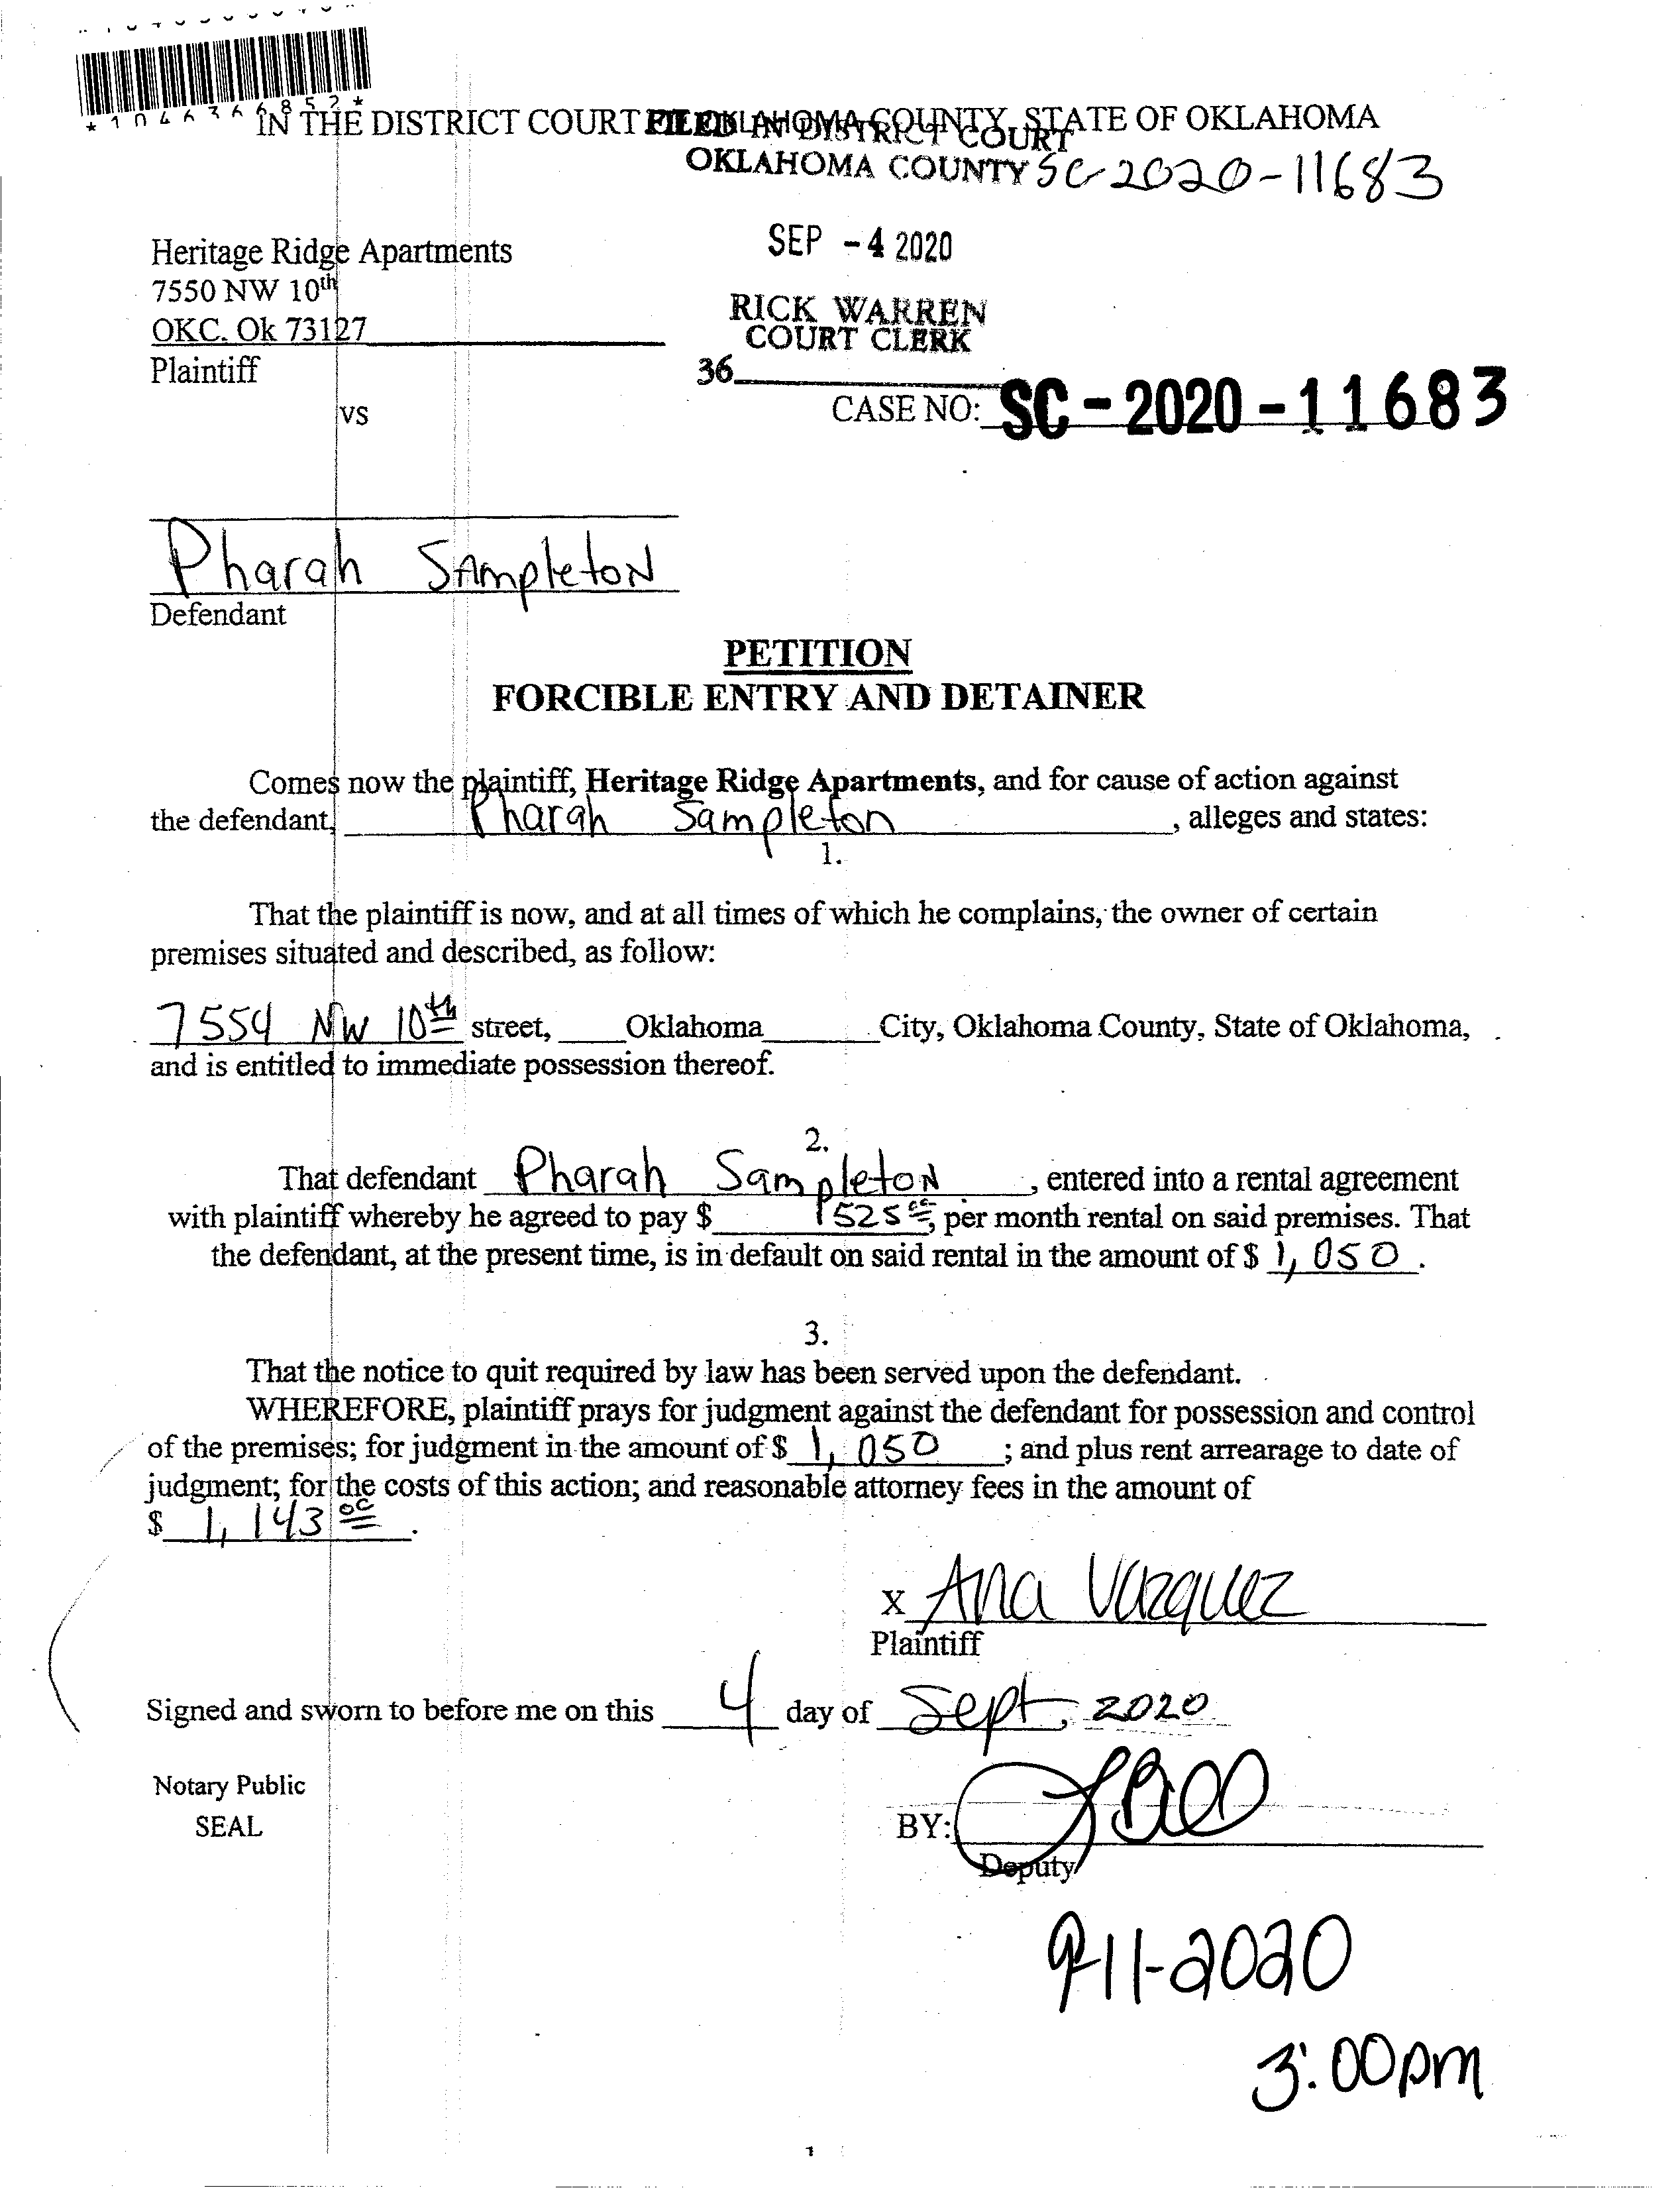 *1046366852*
IN THE DISTRICT COURT OF OKLAHOMA COUNTY, STATE OF OKLAHOMA
FILED IN DISTRICT COURT
OKLAHOMA COUNTY SC-2020-11683
Heritage Ridge Apartments
SEP -4 2020
7550 NW 10th
OKC. Ok 73127
RICK WARREN
COURT CLERK
Plaintiff
36
vs
CASE NO: SC-2020-11683
Pharah Sampleton
Defendant
PETITION
FORCIBLE ENTRY AND DETAINER
Comes now the plaintiff, Heritage Ridge Apartments, and for cause of action against
the defendant, Pharah Sampleton, alleges and states:
1.
That the plaintiff is now, and at all times of which he complains, the owner of certain
premises situated and described, as follow:
7554 NW 10th street, Oklahoma City, Oklahoma County, State of Oklahoma,
and is entitled to immediate possession thereof.
2.
That defendant Pharah Sampleton, entered into a rental agreement
with plaintiff whereby he agreed to pay $ 525 00, per month rental on said premises. That
the defendant, at the present time, is in default on said rental in the amount of $ 1,050.
3.
That the notice to quit required by law has been served upon the defendant.
WHEREFORE, plaintiff prays for judgment against the defendant for possession and control
of the premises; for judgment in the amount of $ 1,050; and plus rent arrearage to date of
judgment; for the costs of this action; and reasonable attorney fees in the amount of
$ 1,143 00.
X Ana Vazquez
Plaintiff
Signed and sworn to before me on this 4 day of Sept, 2020
Notary Public
SEAL
BY:
Deputy
9-11-2020
3:00pm
1